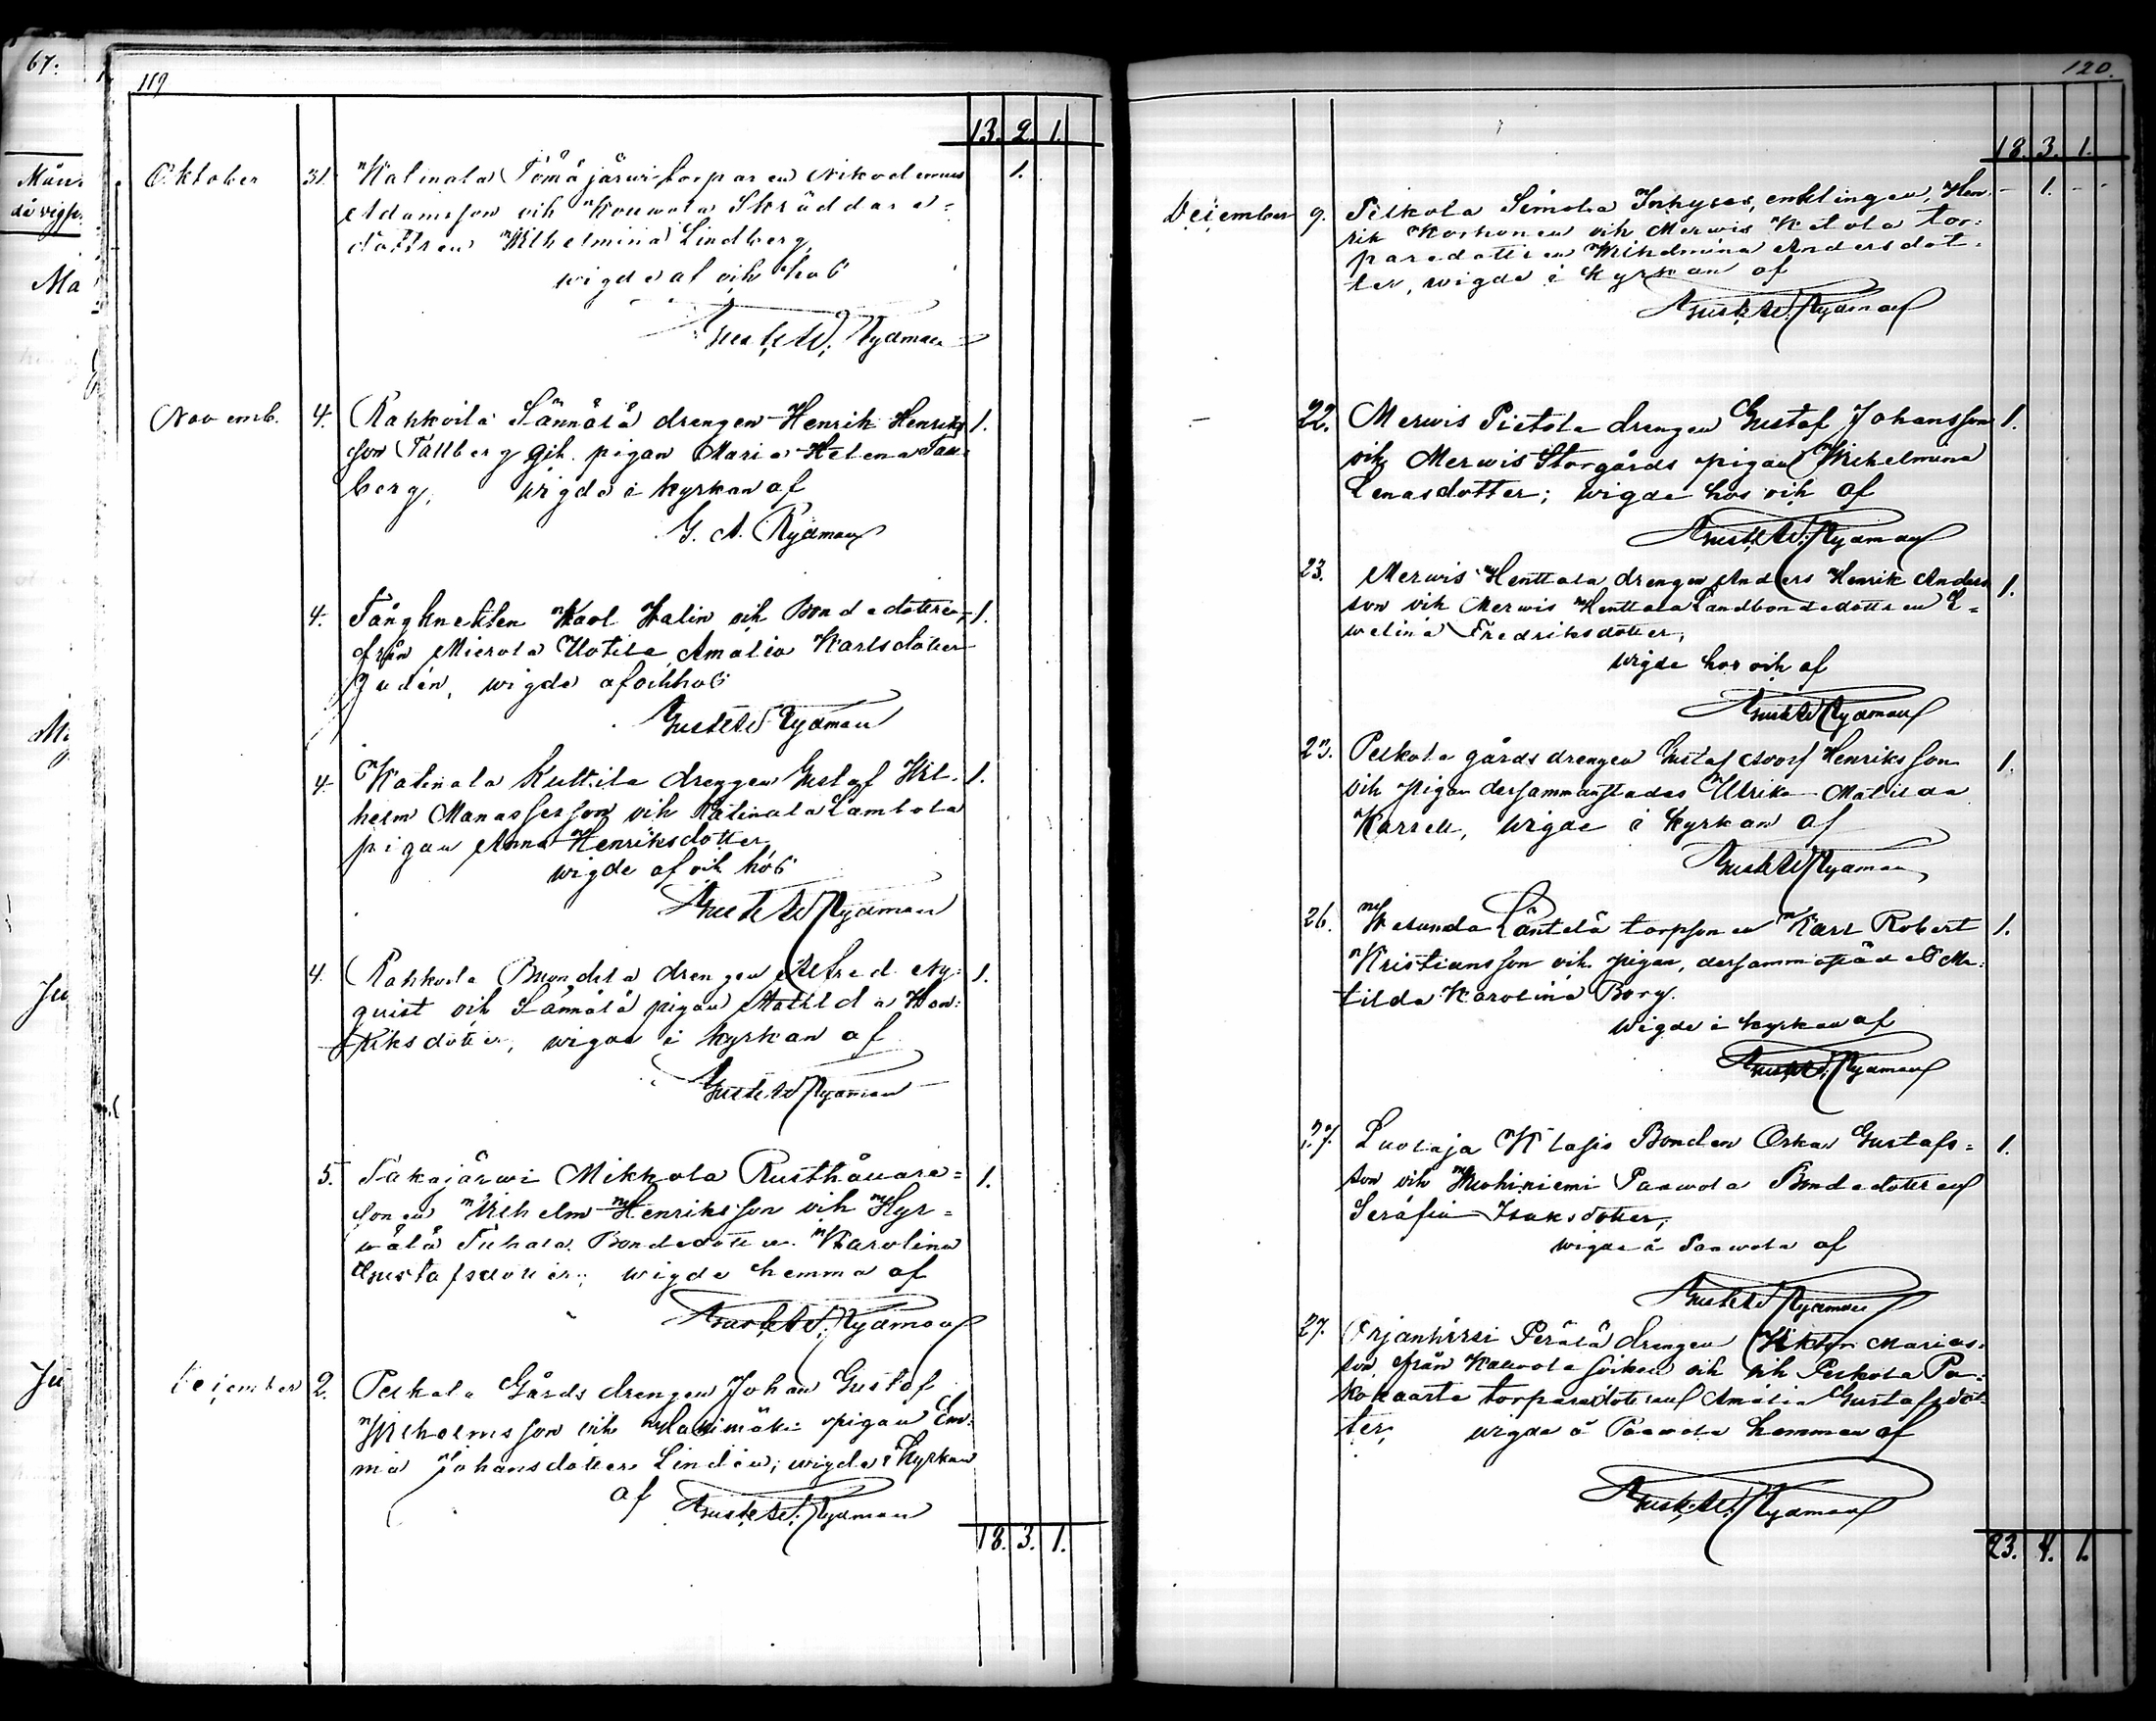 67.
119
13. 2. 1.
Oktober 31. Katinala Tömäjärwi torparen Nikodemus 1.
Adamsson och Kouwola Skräddare-
dottren Wilhelmina Lindberg,
wigde af och hos
Gust. Ad. Rydman
Novemb. 4. Rahkoila Sännälä drengen Henrik Henriks 1.
son Tallberg och pigan Maria Helena Tall-
berg, wigde i kyrkan af
G. A. Rydman
4. Fångknekten Karl Malin och Bondedottren 1.
från Mierola Uotila Amalia Karlsdotter
Judén, wigde af och hos
Gust. Ad. Rydman
4. Katinala Kuttila drengen Gustaf Wil- 1.
helm Manassesson och Katinala Lambola
pigan Anna Henriksdotter,
wigde af och hos
Gust. Ad. Rydman
4. Rahkoila drengen Alfred Ny- 1.
quist och Sännälä pigan Mathilda Hen-
riksdotter, wigde i kyrkan af
Gust. Ad. Rydman
5. Takajärwi Mikkola Rusthållare- 1.
sonen Wilhelm Henriksson och Hyr-
wälä Bondedottren Karolina
Gustafsdotter; wigde hemma af
Gust. Ad. Rydman
December 2. Pelkola Gårds drengen Johan Gustaf
Wilhelmsson och Harjumäki pigan Em-
ma Johansdotter Lindén; wigde i kyrkan
af Gust. Ad. Rydman
18. 3. 1.
120.
18. 3. 1.
December 9. Pelkola Simola Inhyses, enklingen, Hen- - 1. - -
rik Korhonen och Merwis Ketola tor-
paredottren Wilhelmina Andersdot-
ter, wigde i kyrkan af
Gust. Ad. Rydman
22. Merwis Pietola drengen Gustaf Johansson 1.
och Merwis Storgårds pigan Wilhelmina
Lenasdotter; wigde hos och af
Gust. Ad. Rydman
23. Merwis Henttala drengen Anders Henrik Anders 1.
son och Merwis Henttala Landbondedottren E-
welina Fredriksdotter,
wigde hos och af
Gust. Ad. Rydman
23. Pelkola gårds drengen Gustaf Adolf Henriksson 1.
och pigan dersammanstädes Ulrika Matilda
Karsell, wigde i kyrkan af
Gust. Ad. Rydman
26. Wesunda Läntelä torpsonen Karl Robert 1.
Kristiansson och pigan, dersammastädes Ma-
tilda Karolina Borg.
wigde i kyrkan af
Gust. Ad. Rydman
27. Luolaja Klasis Bonden Oskar Gustafs- 1.
son och Wuohiniemi Paawola Bondedottren
Serafia Isaksdotter,
wigde å Paawola af
Gust. Ad. Rydman
27. Orjanhirsi Perälä drengen Wiktor Marias-
son från Kauwola och och Pelkola Pa-
torparedottren Amalia Gustafsdot-
ter, wigde å Paawola hemman af
Gust. Ad. Rydman
23. 4. 1.